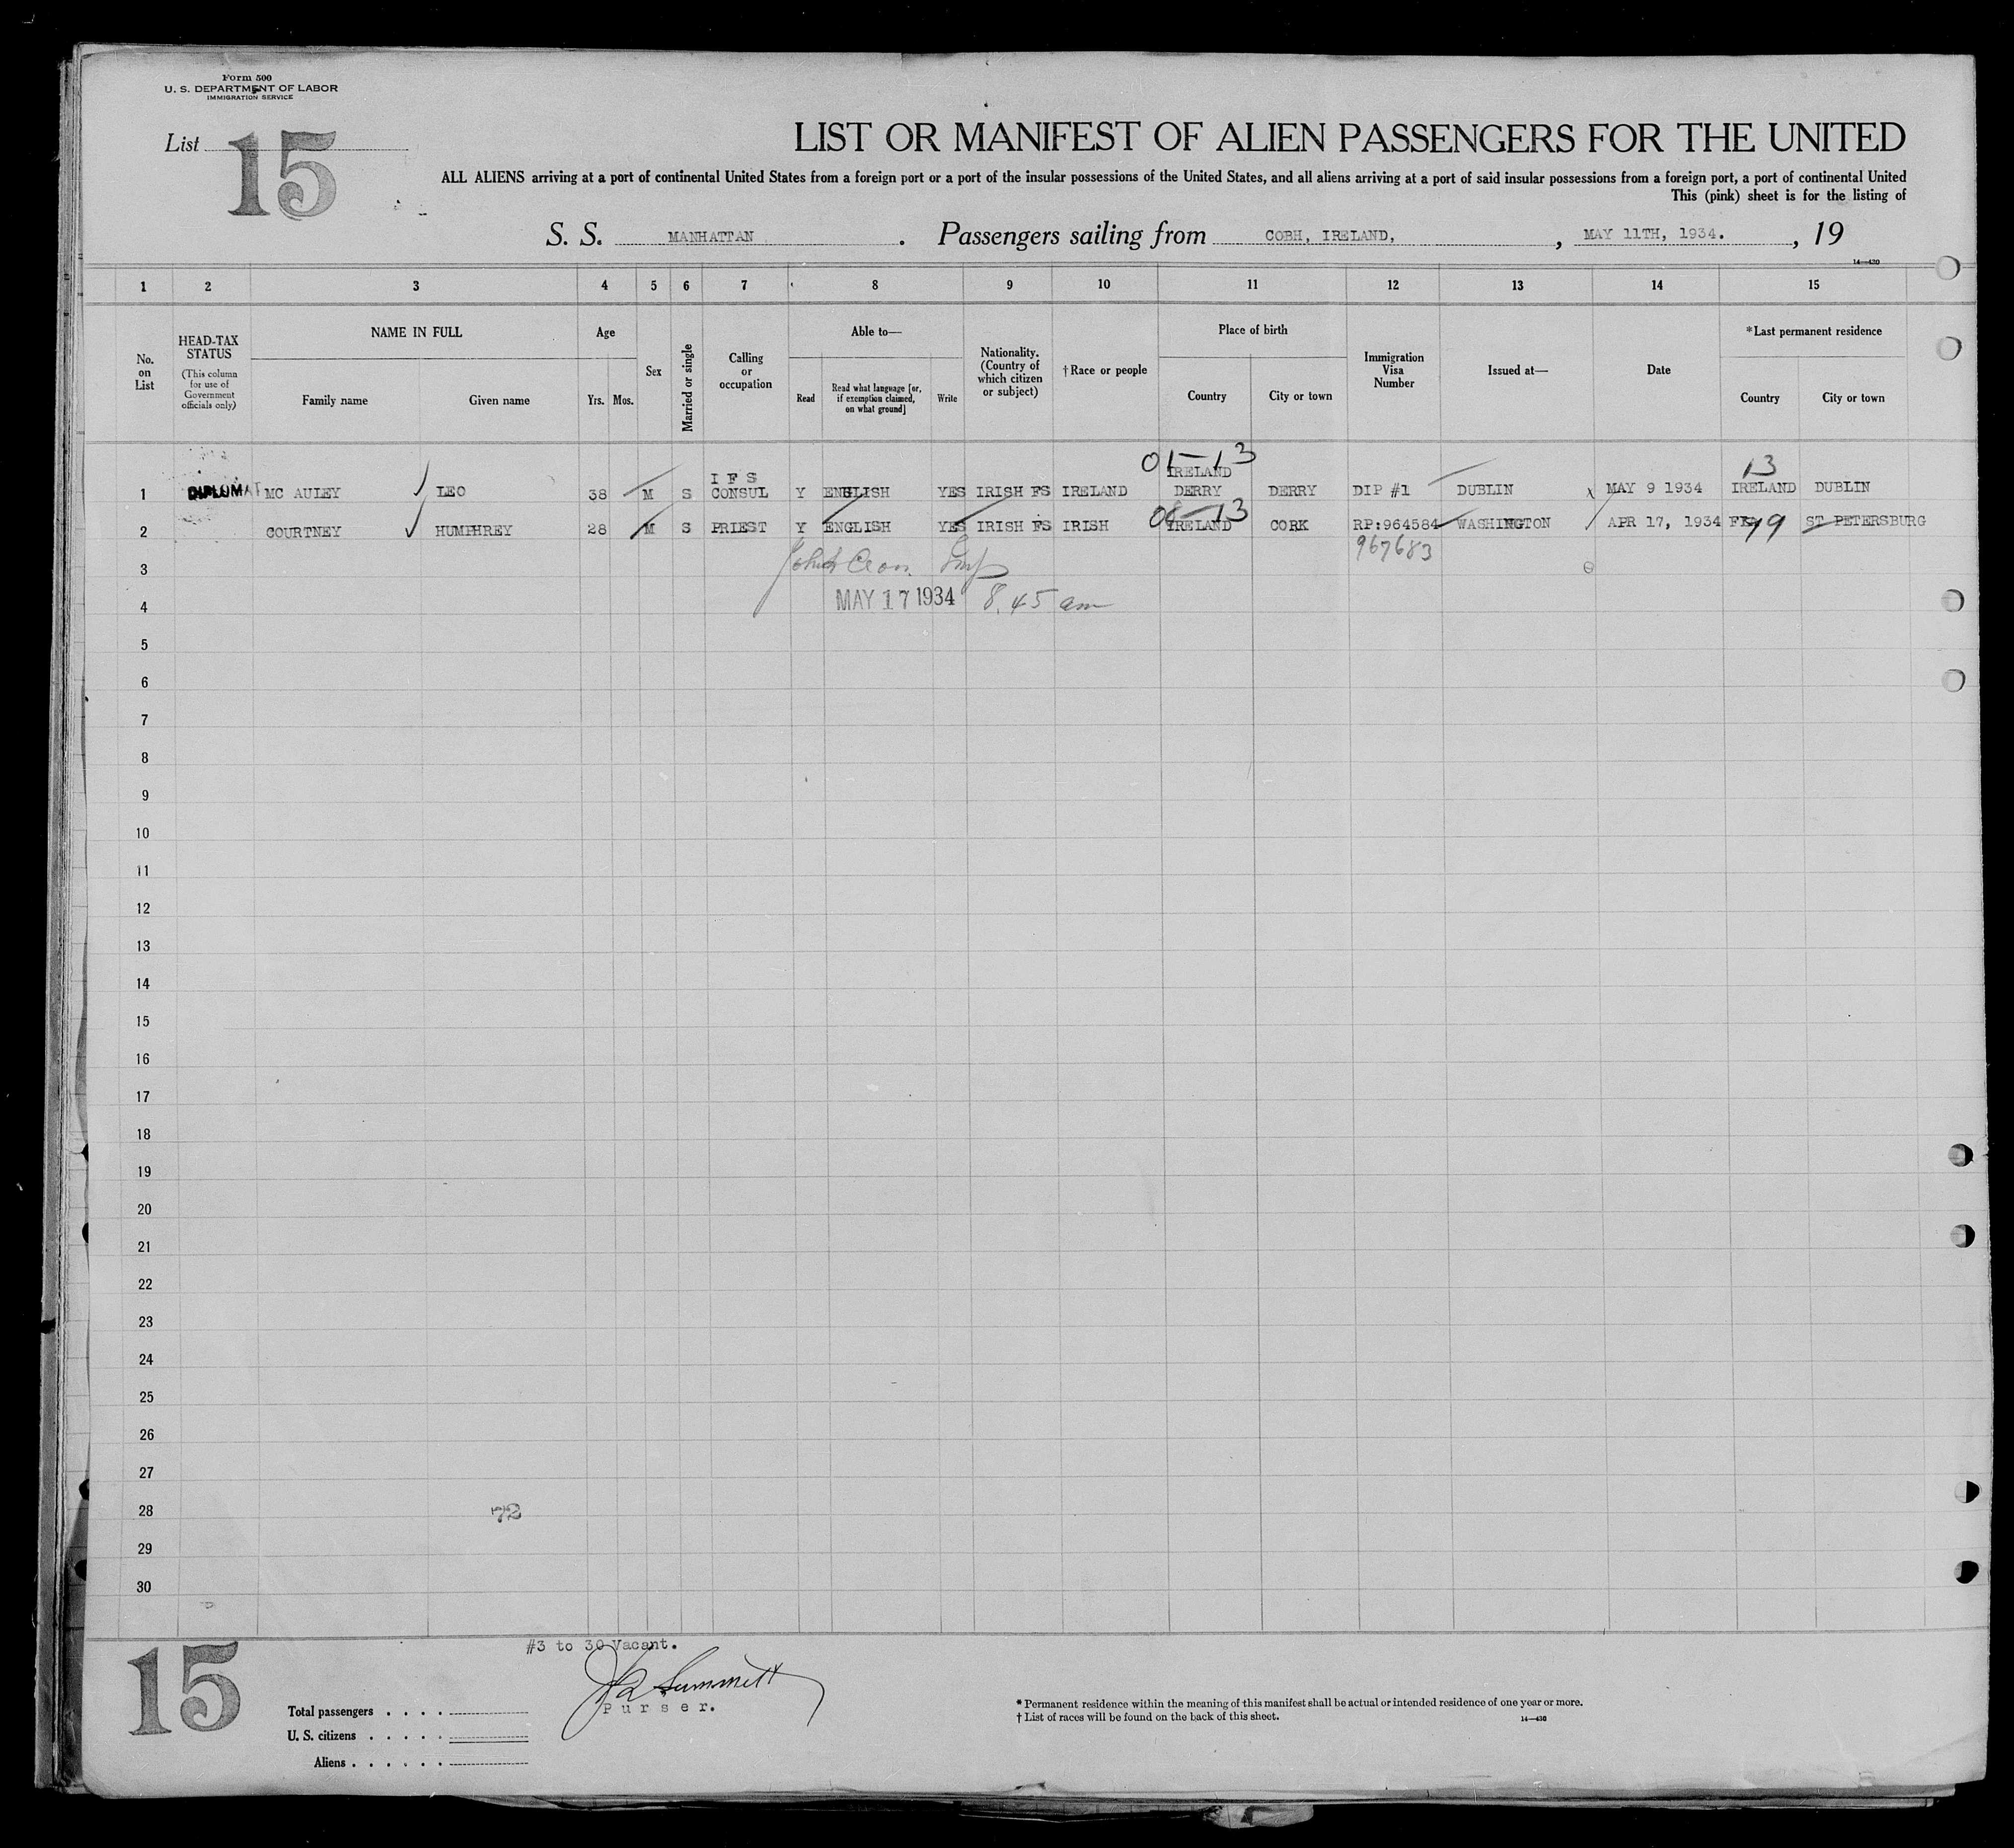 Form 500
U. S. DEPARTMENT OF LABOR
IMMIGRATION SERVICE
List 15
LIST OR MANIFEST OF ALIEN PASSENGERS FOR THE UNITED
ALL ALIENS arriving at a port of continental United States from a foreign port or a port of the insular possessions of the United States, and all aliens arriving at a port of said insular possessions from a foreign port, a port of continental United
This (pink) sheet is for the listing of
S. S. MANHATTAN . Passengers sailing from COBH, IRELAND, , MAY 11TH, 1934. , 19
14—430
1 2 3 4 5 6 7 8 9 10 11 12 13 14 15
No. on List
HEAD-TAX STATUS
(This column for use of Government officials only)
NAME IN FULL
Family name Given name
Age
Yrs. Mos.
Sex
Married or single
Calling or occupation
Able to—
Read
Read what language [or, if exemption claimed, on what ground]
Write
Nationality. (Country of which citizen or subject)
†Race or people
Place of birth
Country City or town
Immigration Visa Number
Issued at—
Date
*Last permanent residence
Country City or town
01-13 13
I F S IRELAND
1 DIPLOMAT MC AULEY LEO 38 M S CONSUL Y ENGLISH YES IRISH FS IRELAND DERRY DERRY DIP #1 DUBLIN MAY 9 1934 IRELAND DUBLIN
2 COURTNEY HUMPHREY 28 M S PRIEST Y ENGLISH YES IRISH FS IRISH IRELAND CORK RP:964584 WASHINGTON APR 17, 1934 ST PETERSBURG
967683
3
4 MAY 17 1934 8.45 am
5
6
7
8
9
10
11
12
13
14
15
16
17
18
19
20
21
22
23
24
25
26
27
28 72
29
30
#3 to 30 Vacant.
15
Purser.
Total passengers . . . .
U. S. citizens . . . . .
Aliens . . . . . .
* Permanent residence within the meaning of this manifest shall be actual or intended residence of one year or more.
† List of races will be found on the back of this sheet.
14—430